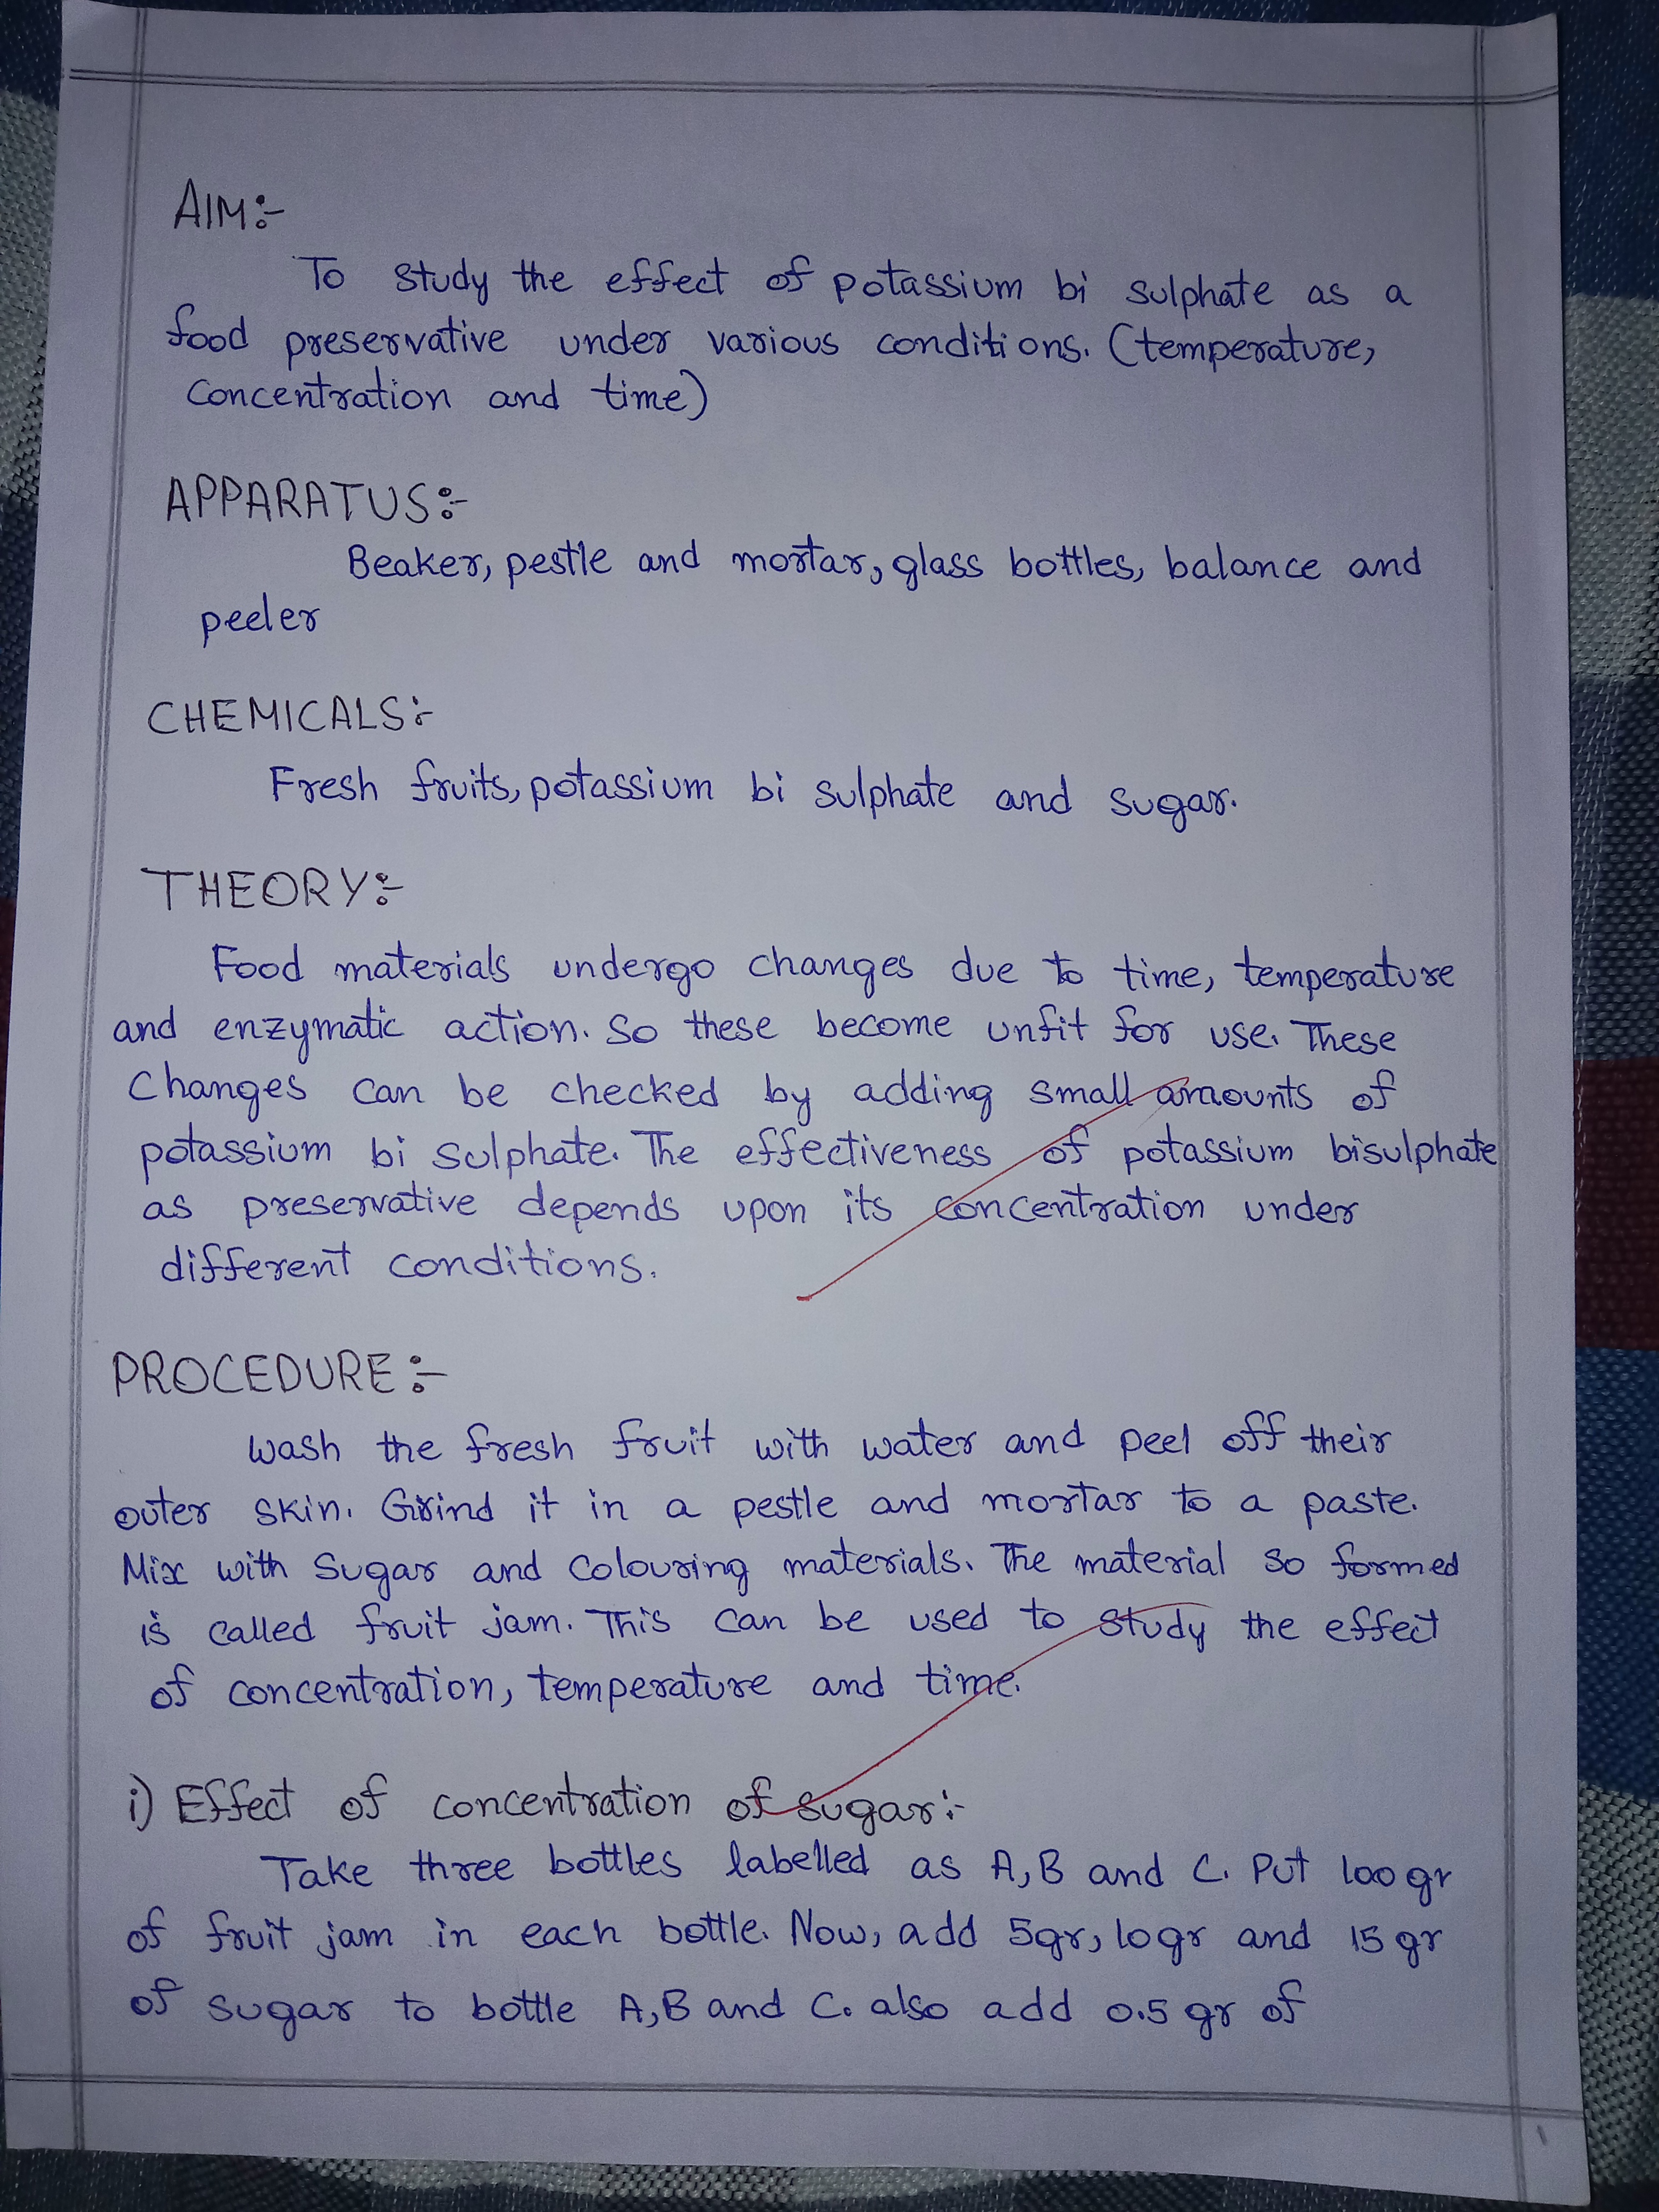 AIM:-
To study the effect of potassium bi sulphate as a
food preservative under various conditions. (temperature,
concentration and time)
APPARATUS:-
Beaker, pestle and mortar, glass bottles, balance and
peeler
CHEMICALS:-
Fresh fruits, potassium bi sulphate and sugar.
THEORY:-
Food materials undergo changes due to time, temperature
and enzymatic action. So these become unfit for use. These
Changes can be checked by adding small amounts of
potassium bi sulphate. The effectiveness of potassium bisulphate
as preservative depends upon its concentration under
different conditions.
PROCEDURE:-
Wash the fresh fruit with water and peel off their
outer skin. Grind it in a pestle and mortar to a paste.
Mix with Sugar and Colouring materials. The material so formed
is called fruit jam. This can be used to study the effect
of concentration, temperature and time.
i) Effect of concentration of sugar:-
Take three bottles labelled as A, B and C. Put 100 gr
of fruit jam in each bottle. Now, add 5gr, 10gr and 15 gr
of sugar to bottle A, B and C. also add 0.5 gr of
1